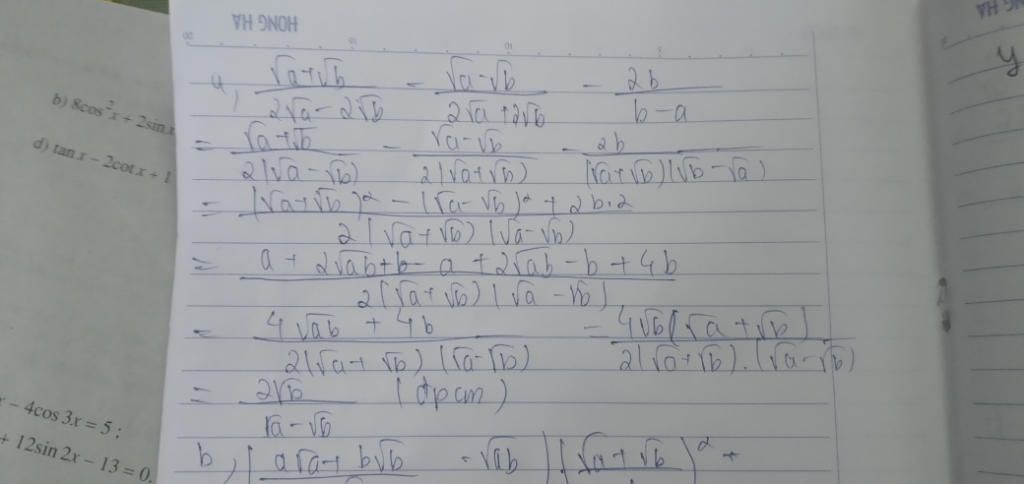 HONG HA
b) 8cos²x + 2sin x
d) tan x − 2cot x + 1
− 4cos 3x = 5 ;
+ 12sin 2x − 13 = 0.
a, (√a+√b)/(2√a − 2√b) − (√a−√b)/(2√a + 2√b) − 2b/(b−a)
= (√a+√b)/(2(√a − √b)) − (√a−√b)/(2(√a+√b)) − 2b/((√a+√b)(√b−√a))
= ((√a+√b)² − (√a−√b)² + 2b.2)/(2(√a+√b)(√a−√b))
= (a + 2√ab + b − a + 2√ab − b + 4b)/(2(√a+√b)(√a−√b))
= (4√ab + 4b)/(2(√a+√b)(√a−√b)) = 4√b(√a+√b)/(2(√a+√b).(√a−√b))
= 2√b/(√a−√b) (đpcm)
b, (a√a + b√b − √ab)(√a+√b)² +
y